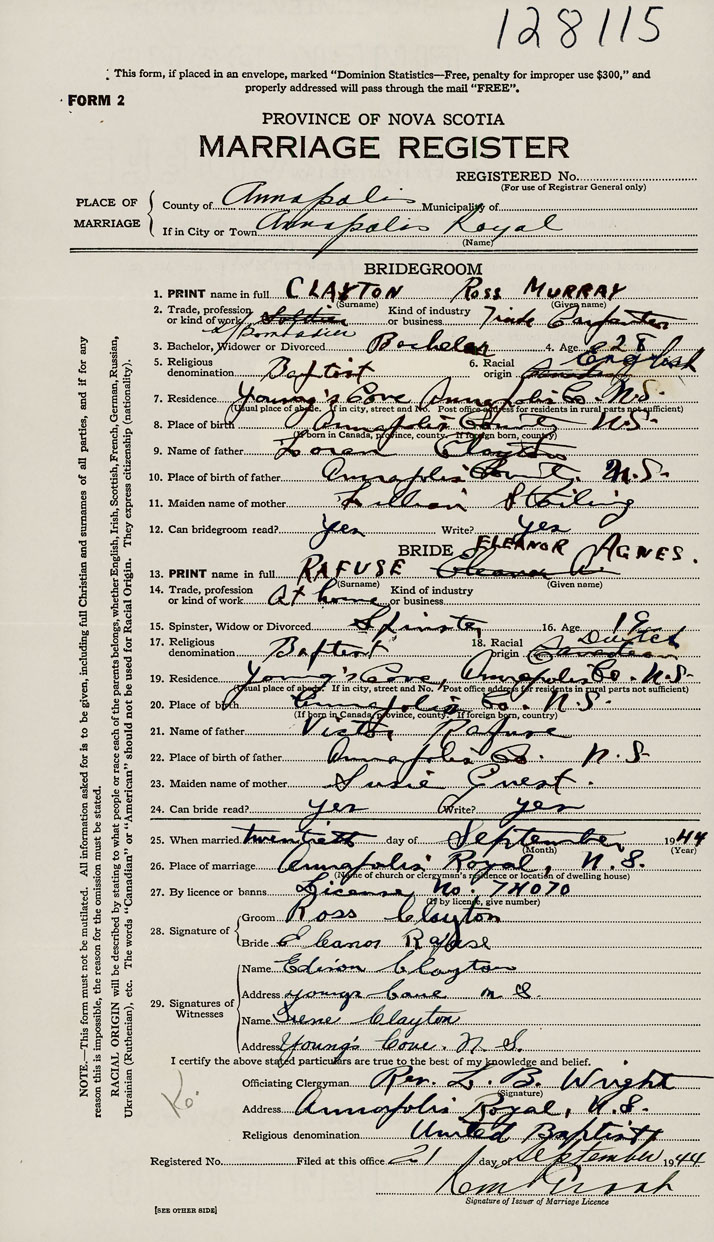 128115
This form, if placed in an envelope, marked "Dominion Statistics—Free, penalty for improper use $300," and
properly addressed will pass through the mail "FREE".
FORM 2
PROVINCE OF NOVA SCOTIA
MARRIAGE REGISTER
REGISTERED No.
(For use of Registrar General only)
PLACE OF MARRIAGE
County of Annapolis Municipality of
If in City or Town Annapolis Royal
(Name)
BRIDEGROOM
1. PRINT name in full CLAYTON ROSS MURRAY
(Surname) (Given name)
2. Trade, profession or kind of work Soldier L/Bombadier Kind of industry or business Trade Carpenter
3. Bachelor, Widower or Divorced Bachelor 4. Age 28
5. Religious denomination Baptist 6. Racial origin English
7. Residence Young's Cove Annapolis Co. N.S.
(Usual place of abode. If in city, street and No. Post office address for residents in rural parts not sufficient)
8. Place of birth Annapolis County N.S.
(If born in Canada, province, county. If foreign born, country)
9. Name of father Loran Clayton
10. Place of birth of father Annapolis County. N.S.
11. Maiden name of mother Lillian Stirling
12. Can bridegroom read? Yes Write? Yes
BRIDE ELEANOR AGNES.
13. PRINT name in full RAFUSE Eleanor
(Surname) (Given name)
14. Trade, profession or kind of work At home Kind of industry or business
15. Spinster, Widow or Divorced Spinster 16. Age 19
17. Religious denomination Baptist 18. Racial origin Canadian Dutch
19. Residence Young's Cove, Annapolis Co. N.S.
(Usual place of abode. If in city, street and No. Post office address for residents in rural parts not sufficient)
20. Place of birth Annapolis Co. N.S.
(If born in Canada, province, county. If foreign born, country)
21. Name of father Victor Rafuse
22. Place of birth of father Annapolis Co. N.S.
23. Maiden name of mother Susie Guest.
24. Can bride read? yes Write? yes
25. When married twentieth day of September 1944
(Month) (Year)
26. Place of marriage Annapolis Royal, N.S.
(Name of church or clergyman's residence or location of dwelling house)
27. By licence or banns License No. 74070
(If by license, give number)
28. Signature of
Groom Ross Clayton
Bride Eleanor Rafuse
29. Signatures of Witnesses
Name Edison Clayton
Address youngs Cove N S.
Name Irene Clayton
Address Young's Cove. N. S.
I certify the above stated particulars are true to the best of my knowledge and belief.
Officiating Clergyman Rev. L. B. Wright
(Signature)
Address Annapolis Royal, N.S.
Religious denomination United Baptist
Registered No. Filed at this office 21 day of September 1944
Signature of Issuer of Marriage Licence
[SEE OTHER SIDE]
NOTE.—This form must not be mutilated. All information asked for is to be given, including full Christian and surnames of all parties, and if for any
reason this is impossible, the reason for the omission must be stated.
RACIAL ORIGIN will be described by stating to what people or race each of the parents belongs, whether English, Irish, Scottish, French, German, Russian,
Ukrainian (Ruthenian), etc. The words "Canadian" or "American" should not be used for Racial Origin. They express citizenship (nationality).